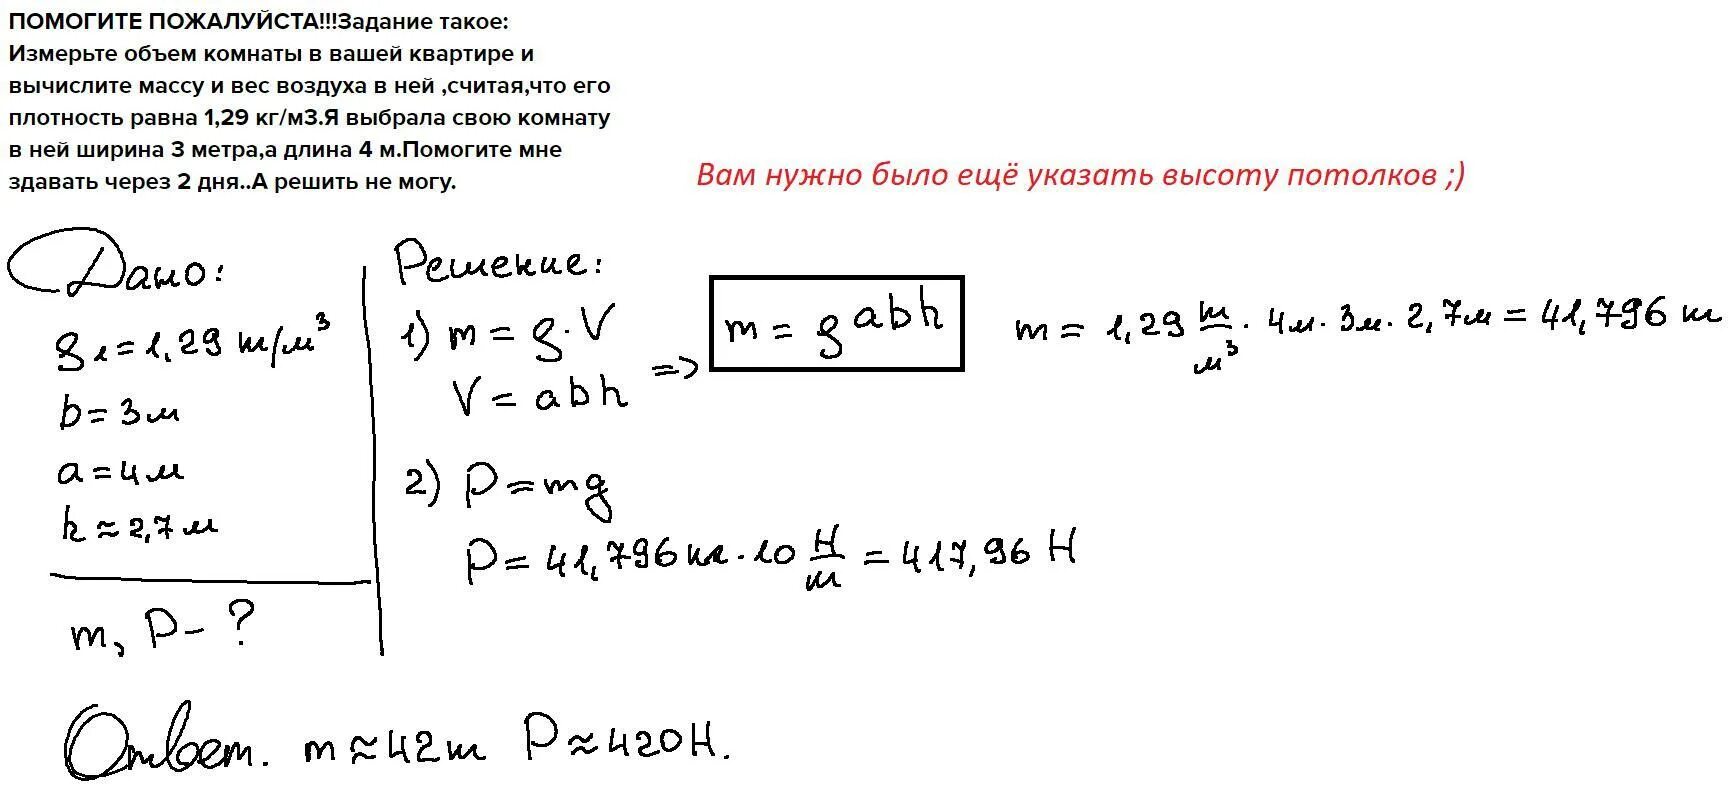 ПОМОГИТЕ ПОЖАЛУЙСТА!!!Задание такое:
Измерьте объем комнаты в вашей квартире и
вычислите массу и вес воздуха в ней ,считая,что его
плотность равна 1,29 кг/м3.Я выбрала свою комнату
в ней ширина 3 метра,а длина 4 м.Помогите мне
здавать через 2 дня..А решить не могу.
Вам нужно было ещё указать высоту потолков ;)
Дано:
ρ₁ = 1,29 кг/м³
b = 3 м
a = 4 м
h ≈ 2,7 м
m, P - ?
Решение:
1) m = ρ · V
V = abh
=> m = ρabh
m = 1,29 кг/м³ · 4м · 3м · 2,7м = 41,796 кг
2) P = mg
P = 41,796 кг · 10 Н/кг = 417,96 Н
Ответ. m ≈ 42 кг P ≈ 420 Н.